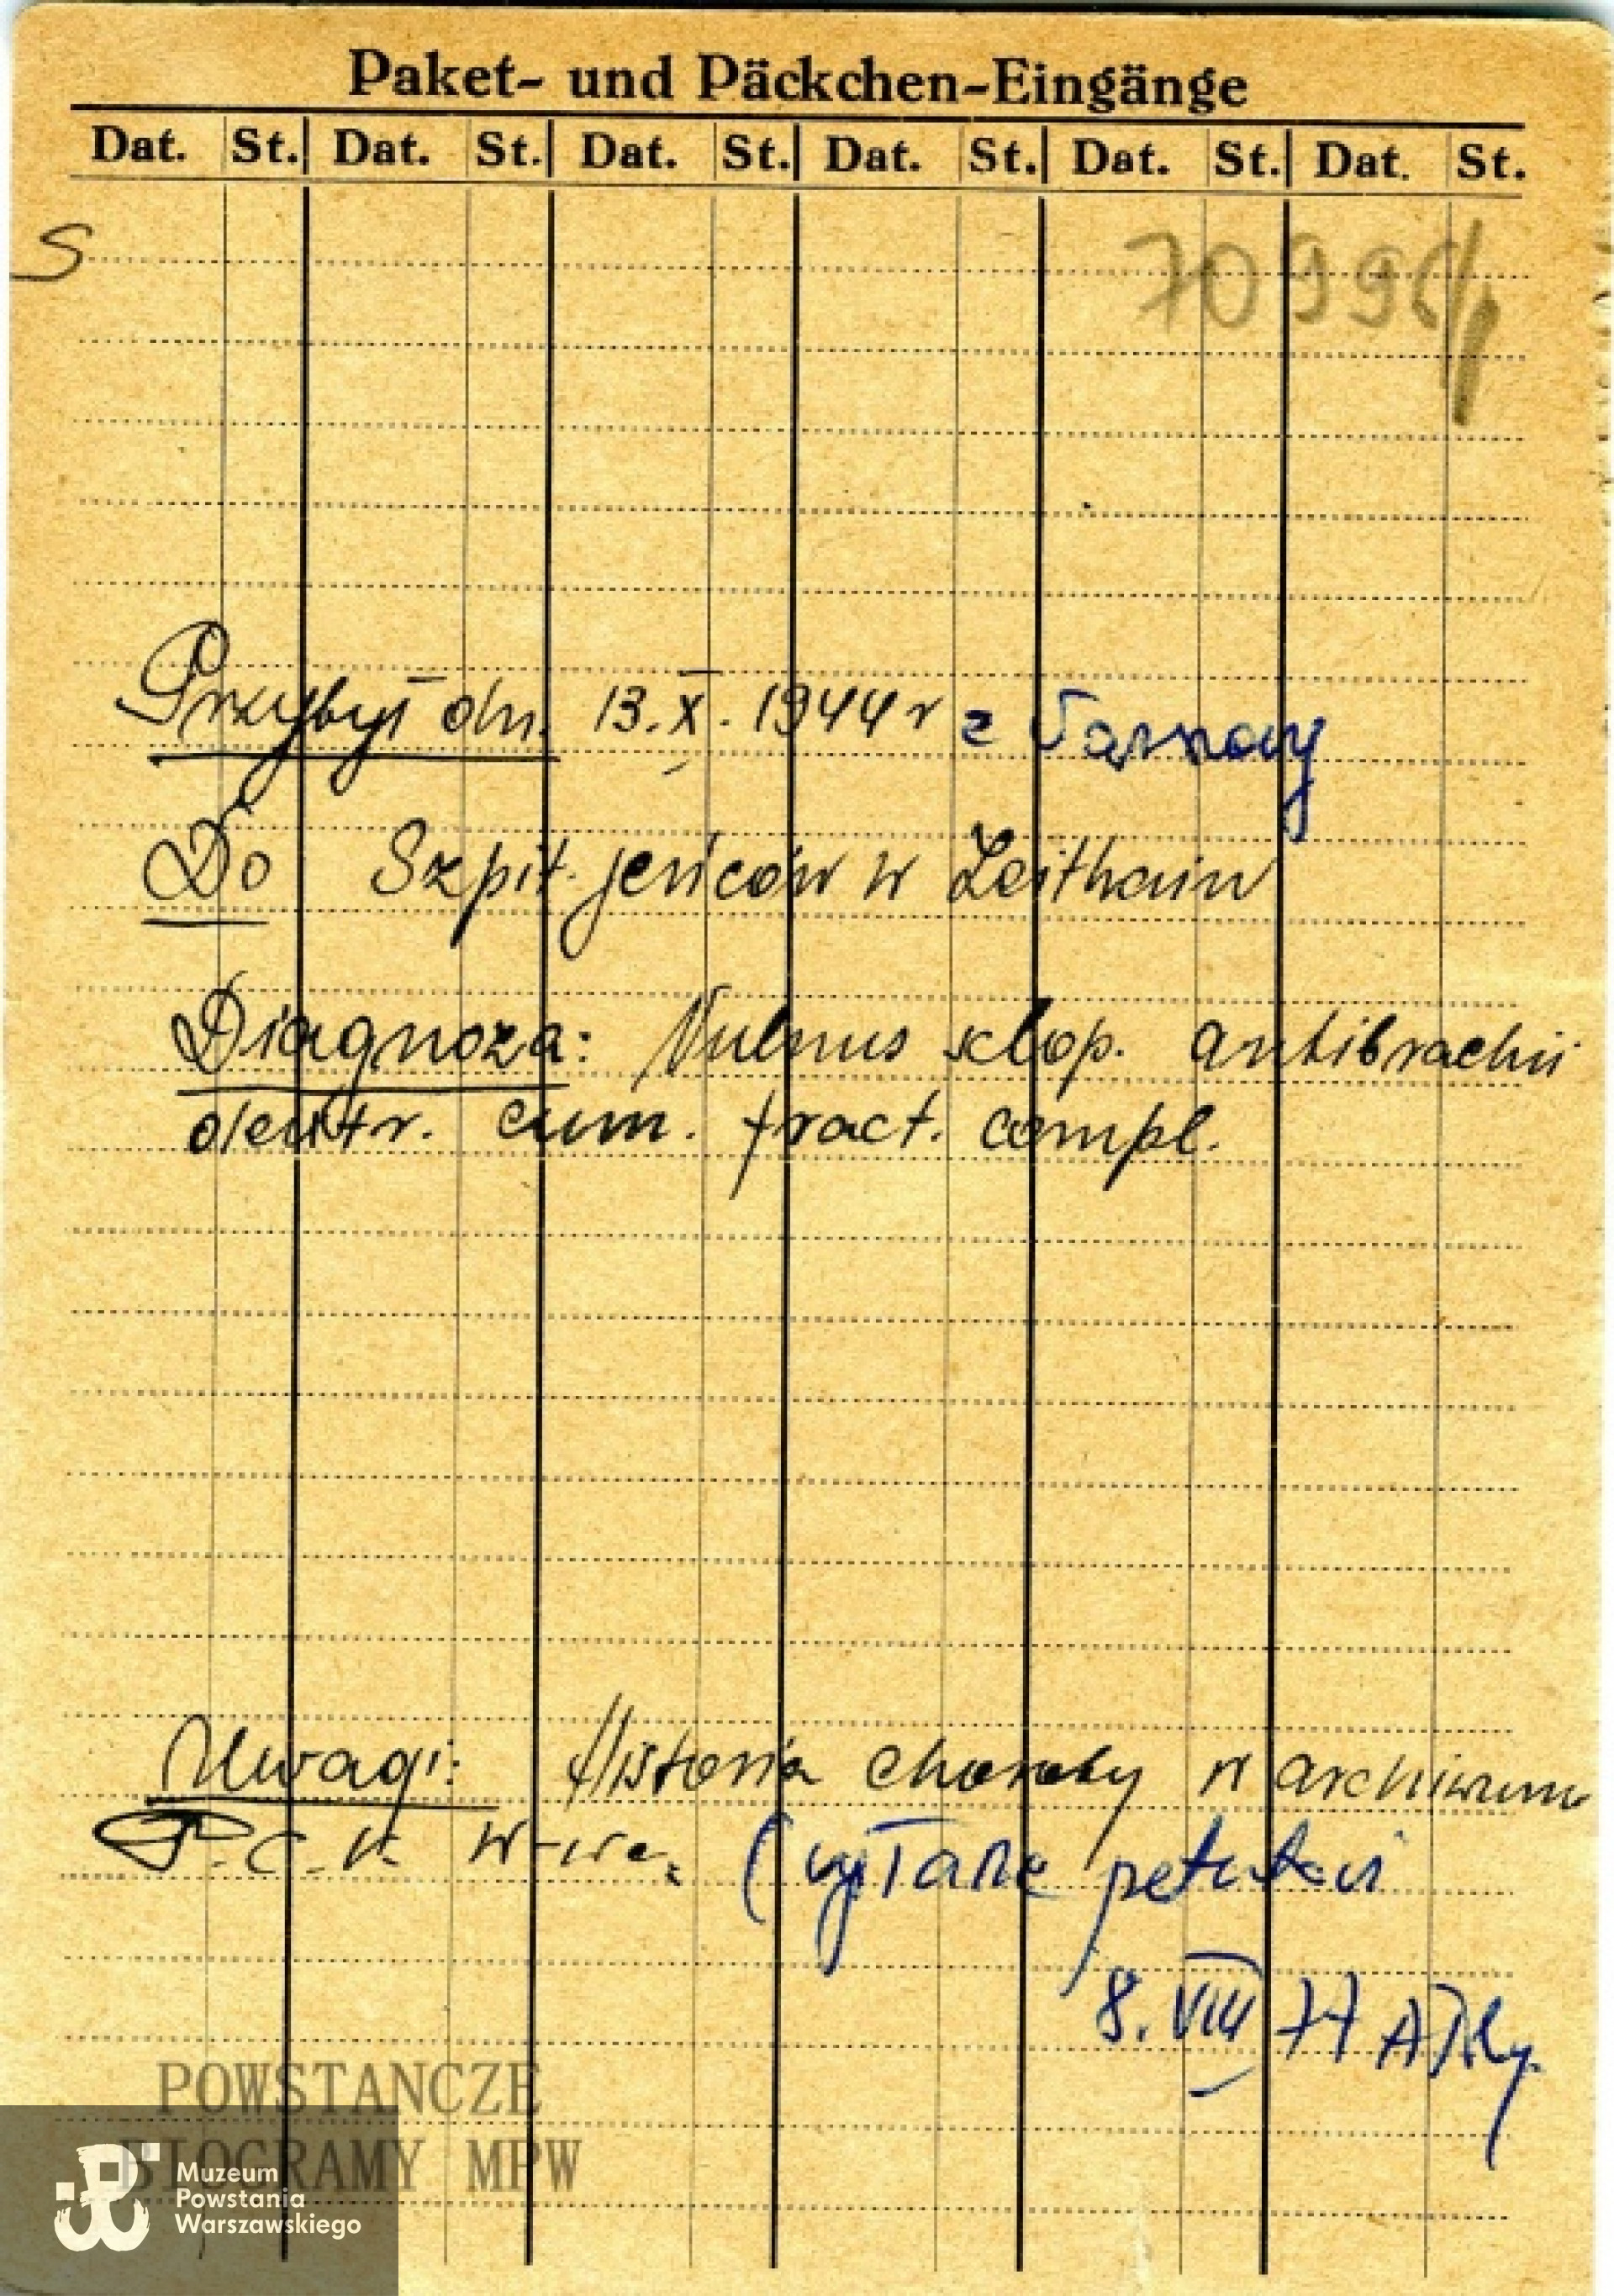 Paket- und Päckchen-Eingänge
Dat. St. Dat. St. Dat. St. Dat. St. Dat. St. Dat. St.
S
Przybył dn. 13.X.1944 r z
Do Szpit. jeńców w Zeithain
Diagnoza: Vulnus sklop. antibrachii
dextr. cum. fract. compl.
Uwagi: Historia choroby w archiwum
P.C.K. W-wa. (
8.VIII 77
POWSTANCZE
BIOGRAMY MPW
Muzeum
Powstania
Warszawskiego